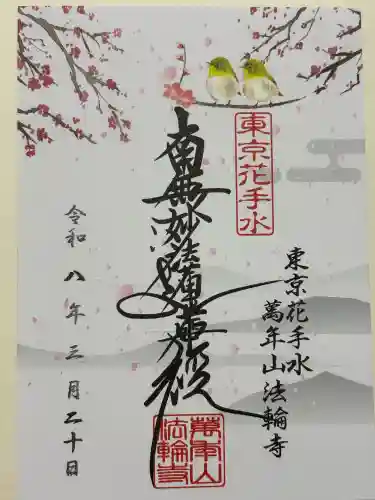 東京花手水
東京花手水
萬年山法輪寺
南無妙法蓮華経
令和八年三月二十日
萬年山
法輪寺